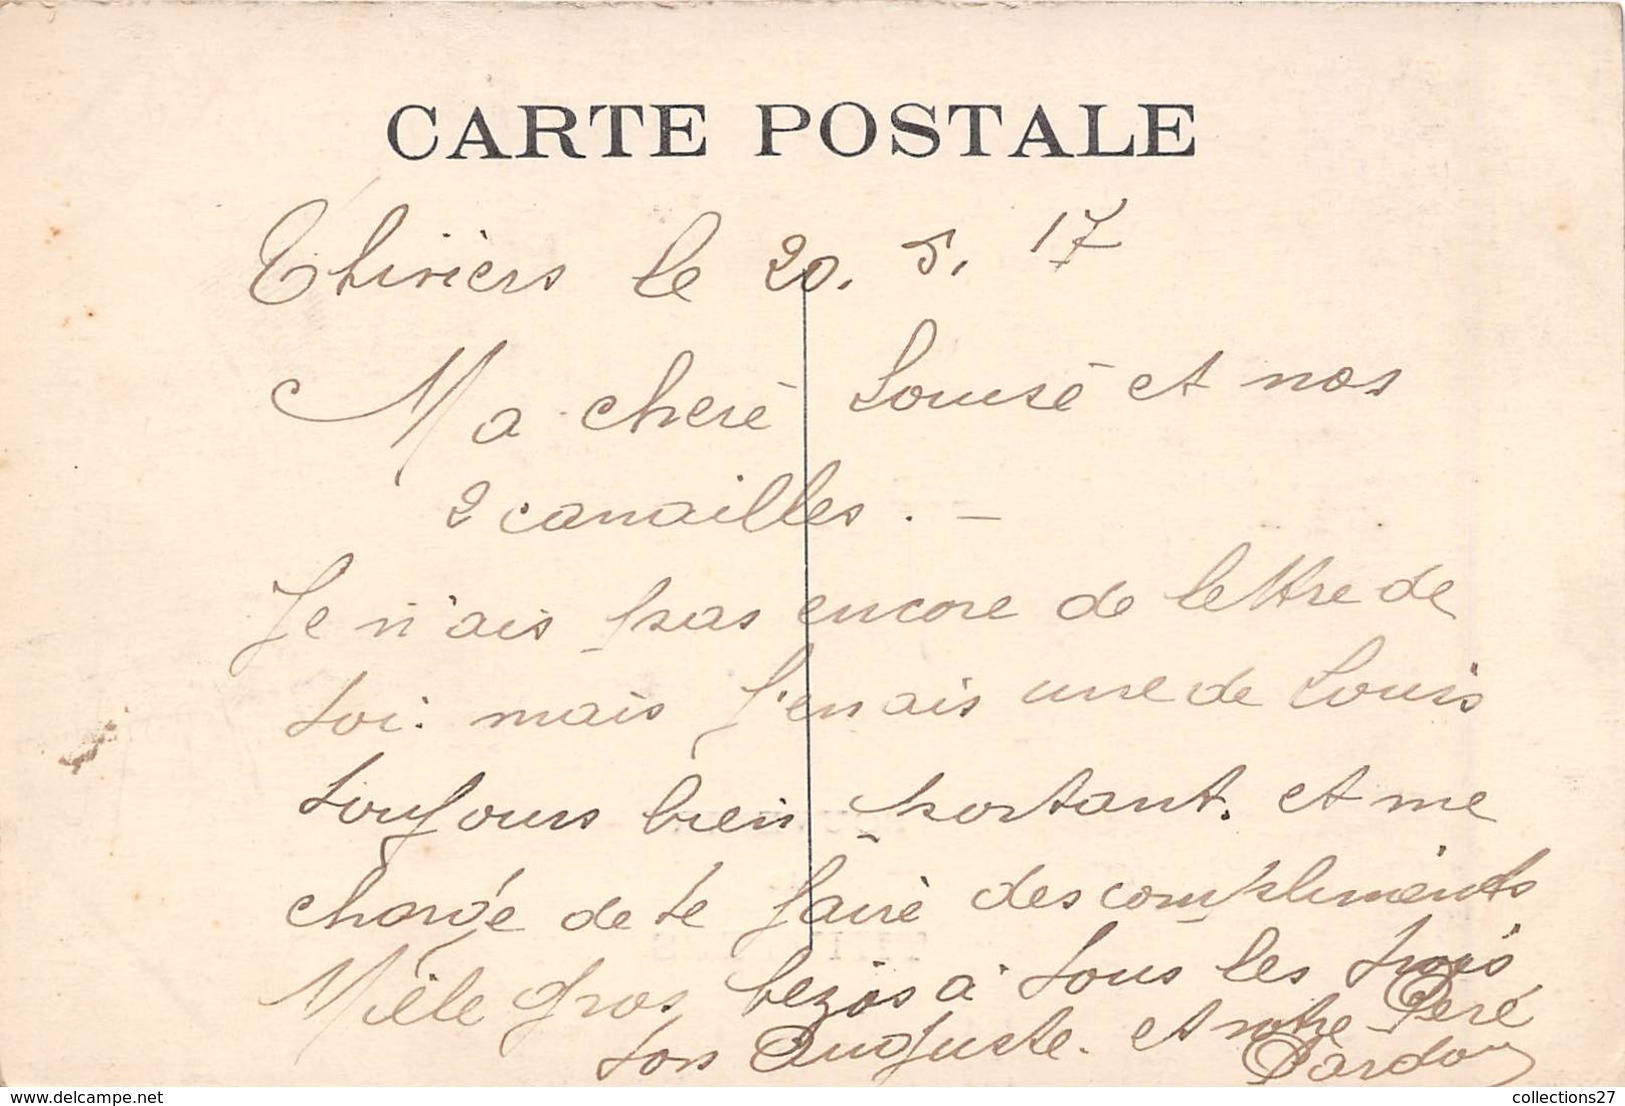 CARTE POSTALE
Thiviers le 20. 5. 17
Ma cheré Louisé et nos
2 canailles. -
Je n'ais pas encore de lettre de
toi. mais J'en ais une de Louis
toujours bien portant. et me
charge de te fairé des compliments
Mille gros bezos à tous les trois
ton Auguste. et notre Peré
Pardon
delcampe.net
collections27